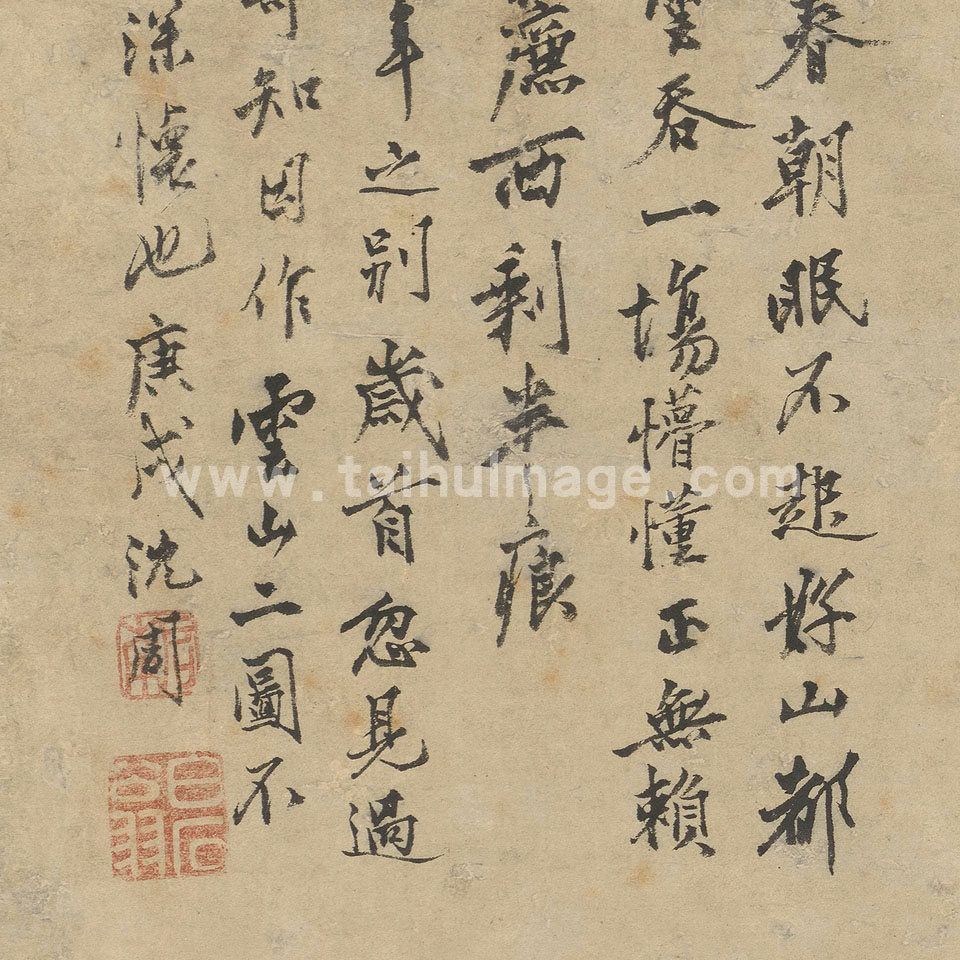 春朝眠不起好山都
雲吞一塲懵懂正無賴
簷西剩半痕
年之别歲首忽見過
知因作雲山二圖不
深懷也庚戌沈周
www.taihuImage.com